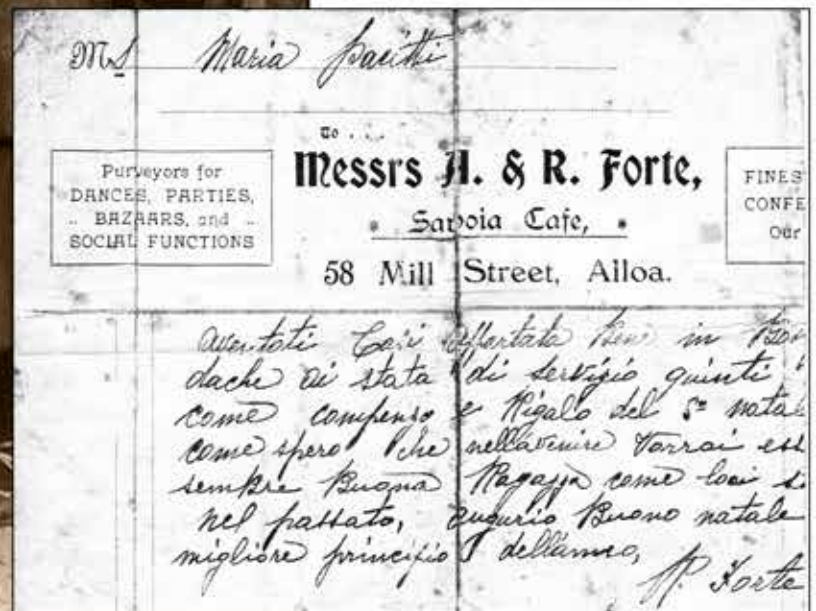 Ms Maria Pacitti
To ....
Messrs A. & R. Forte,
Purveyors for
DANCES, PARTIES,
.. BAZAARS, and ..
SOCIAL FUNCTIONS
Savoia Cafe,
58 Mill Street, Alloa.
FINES
CONFE
Our
Così in
dache ai stata di servizio quinti
come compenso e Rigalo del Sº natal
come spero che nellavenire Vorrai ess
sempre Buona Ragazza come
nel passato, augurio Buono natale
migliore principio dellanno,
Forte